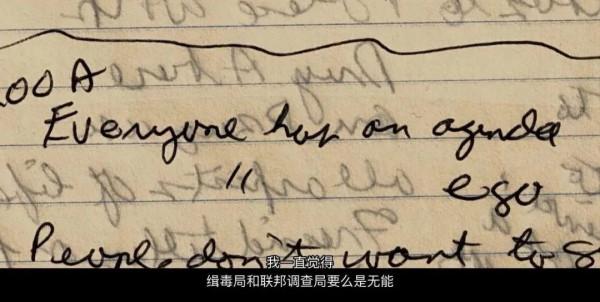 00 A
Everyone has an agenda
" ego
People don't want to
我一直觉得
缉毒局和联邦调查局要么是无能